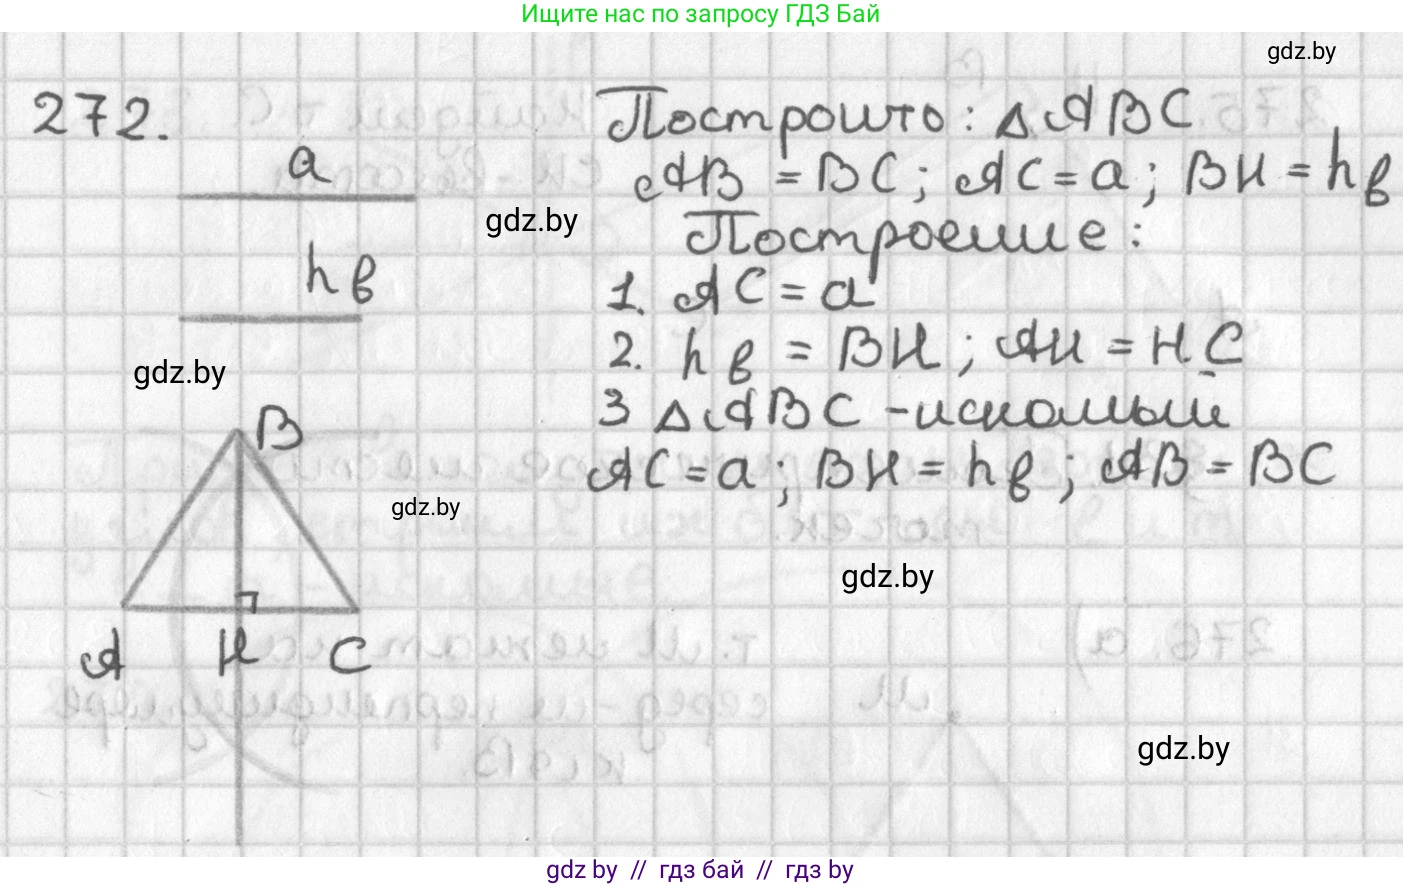 Ищите нас по запросу ГДЗ Бай
gdz.by
272.
a
hв
Построить: △ABC
AB = BC; AC = a; BH = hв
gdz.by
Построение:
1. AC = a
2. hв = BH; AH = HC
3 △ABC - искомый
AC = a; BH = hв; AB = BC
gdz.by
B
gdz.by
A H C
gdz.by
gdz.by
gdz.by // гдз бай // гдз by